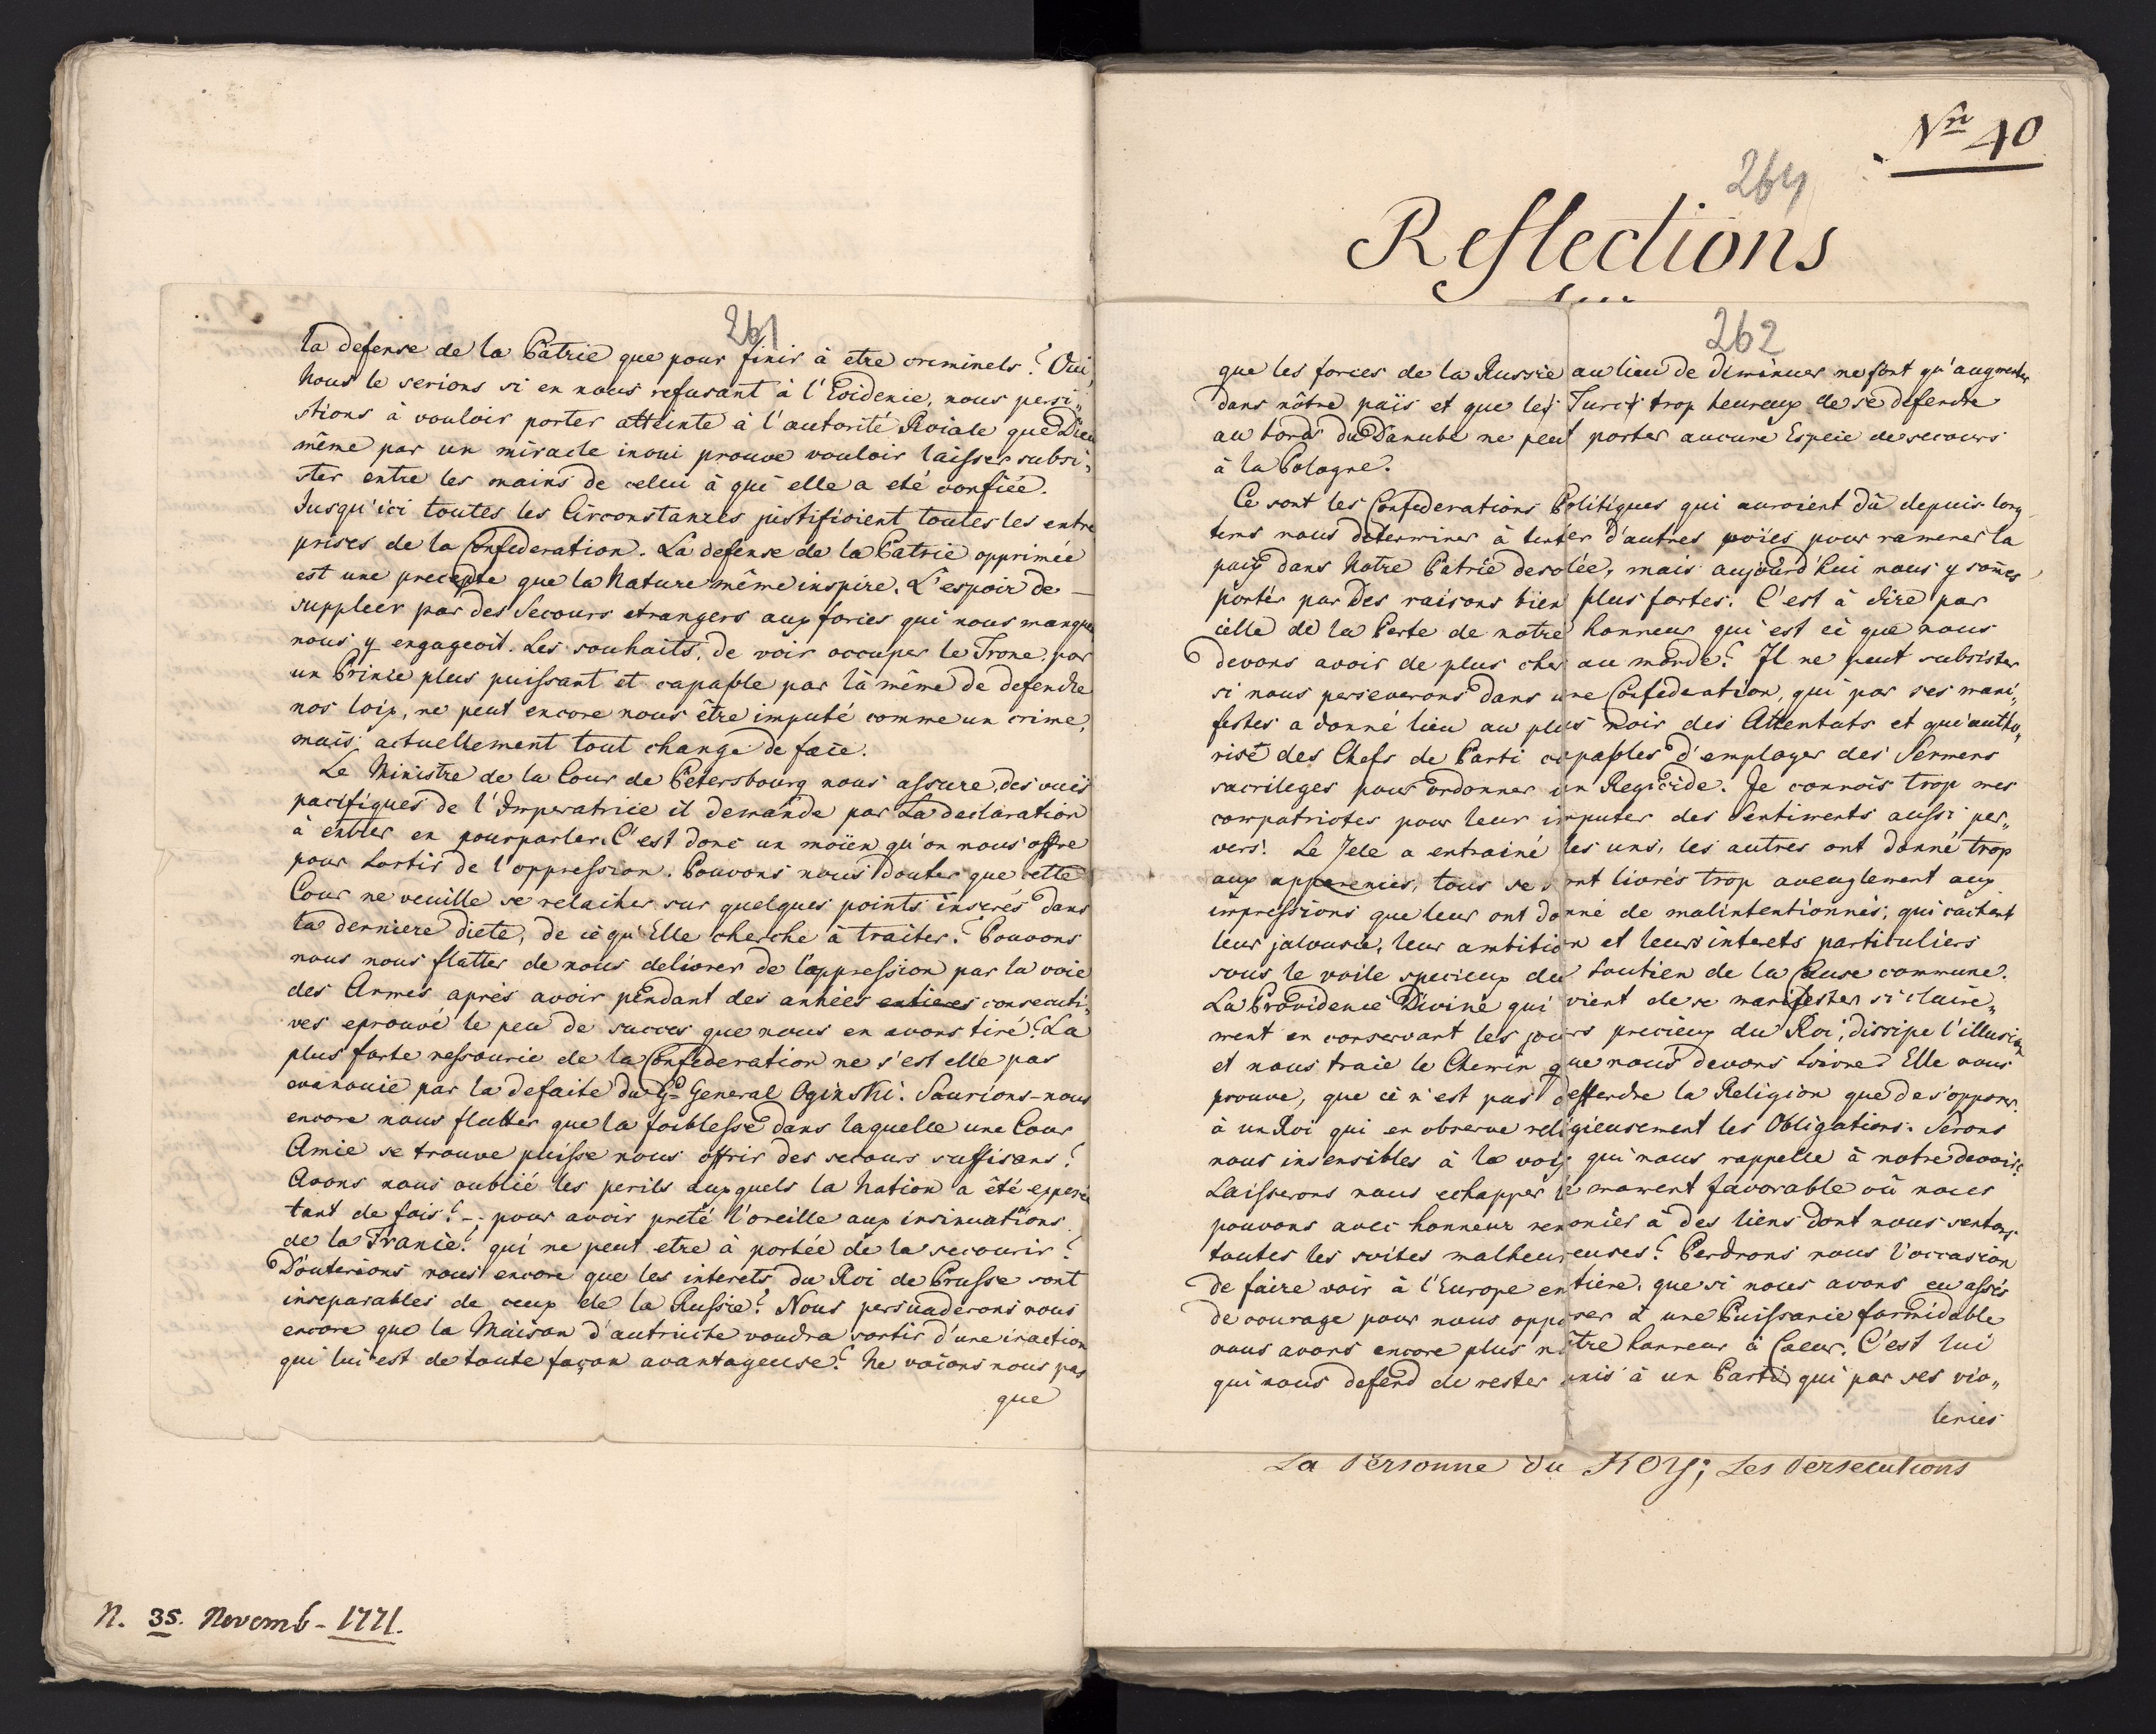 261
la defense de la Patrie que pour finir à etre criminels? Oui,
Nous le serions si en nous refusant à l'Evidence, nous persi„
stions à vouloir porter atteinte à l'autorité Roiale que Dieu
même par un miracle inoui prouve vouloir laisser subsi„
ster entre les mains de celui à qui elle a eté confiée.
Jusqu'ici toutes les Circonstances justifioient toutes les entre
prises de la Confederation. La defense de la Patrie opprimée
est une precepte que la Nature même inspire. L'espoir de
suppleer par des Secours etrangers aux forces qui nous manque
nous y engageoit. Les souhaits, de voir occuper le Trone par
un Prince plus puissant et capable par là même de defendre
nos loix, ne peut encore nous être imputé comme un crime,
mais, actuellement tout change de face.
Le Ministre de la Cour de Petersbourg nous assure, des vues
pacifiques de l'Imperatrice il demande par La declaration
à entrer en pourparler. C'est donc un moïen qu'on nous offre
pour sortir de l'oppression. Pouvons nous douter que cette
Cour ne veuille se relacher sur quelques points inserés dans
la derniere diete, de ce qu'Elle cherche à traiter? Pouvons
nous nous flatter de nous delivrer de l'oppression par la voie
des Armes aprés avoir pendant des années entieres consecuti„
ves eprouvé le peu de succes que nous en avons tiré? La
plus forte ressource de la Confederation ne s'est elle pas
evanouie par la defaite du Gd General Oginski. Saurions-nous
encore nous flatter que la foiblesse dans laquelle une Cour
Amie se trouve puisse nous offrir des secours suffisans?
Avons nous oublié les perils auxquels la Nation a été exposée
tant de fois? pour avoir preté l'oreille aux insinuations
de la France? qui ne peut etre à portée de la secourir?
Douterions nous encore que les interets du Roi de Prusse sont
inseparables de ceux de la Russie? Nous persuaderons nous
encore que la Maison d'autriche voudra sortir d'une inaction
qui lui est de toute façon avantageuse? Ne voions nous pas
que
N. 35. Novemb - 1771.
Nro 40
264
Reflections
262
que les forces de la Russie au lieu de diminuer ne font qu'augmenter
dans nôtre païs et que les Turcs trop heureux de se defendre
au bord du Danube ne peut porter aucune Espece de secours
à la Pologne.
Ce sont les Confederations Politiques qui auroient dû depuis long
tems nous determiner à tenter d'autres voïes pour ramener la
paix dans Notre Patrie desolée, mais aujourd'hui nous y somes
portés par des raisons bien plus fortes. C'est à dire par
celle de la Perte de notre honneur qui est ce que nous
devons avoir de plus cher au monde? Il ne peut subsister
si nous perseverons dans une Confederation, qui par ses mani„
festes a donné lieu au plus noir des Attentats et qui autho„
rise des Chefs de Parti capables d'employer des Sermens
sacrileges pour ordonner un Regicide. Je connois trop mes
compatriotes pour leur imputer des Sentiments aussi per„
vers. Le Zele a entrainé les uns, les autres ont donné trop
aux apparences, tous se sont livrés trop aveuglement aux
impressions que leur ont donné de malintentionnés, qui cachent
leur jalousie, leur ambition et leurs interets particuliers
sous le voile specieux du Soutien de la Cause commune.
La Providence Divine qui vient de se manifester si claire„
ment en conservant les jours precieux du Roi, dissipe l'illusion
et nous trace le Chemin que nous devons suivre. Elle nous
prouve, que ce n'est pas deffendre la Religion que de s'opposer
à un Roi qui en observe religieusement les Obligations. Serons
nous insensibles à la voix qui nous rappelle à notre devoir?
Laisserons nous echapper le moment favorable où nous
pouvons avec honneur renoncer à des liens dont nous sentons
toutes les suites malheureuses? Perdrons nous l'occasion
de faire voir à l'Europe entiere, que si nous avons eu assés
de courage pour nous opposer à une Puissance formidable
nous avons encore plus nôtre honneur à Coeur. C'est lui
qui nous defend de rester unis à un Parti qui par ses vio„
lences
La Personne du ROY; Les Persecutions